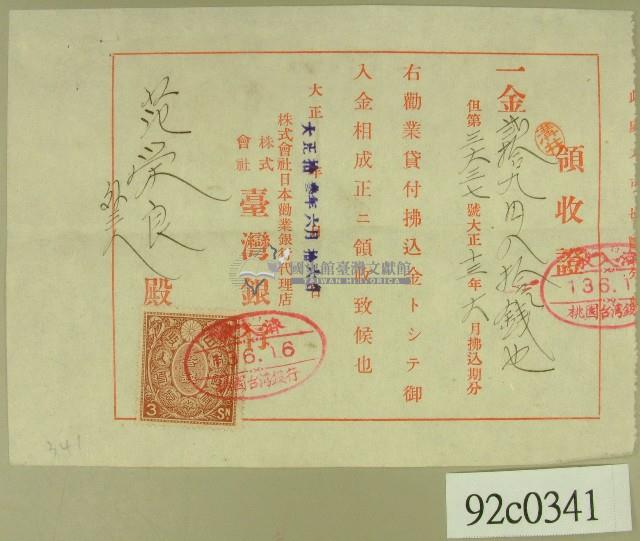 領收證
一金貳拾九円八拾錢也
但第三六三七號大正十三年六月拂込期分
右勸業貸付拂込金トシテ御
入金相成正ニ領收致候也
大正
大正拾參年六月拾六日
株式會社日本勸業銀行代理店
株式會社臺灣銀行
范榮良
外一人
殿
入濟
13.6.16
桃園台灣銀行
入濟
13.6.16
桃園台灣銀行
3 SN
國史館臺灣文獻館
TAIWAN HISTORICA
341
92c0341